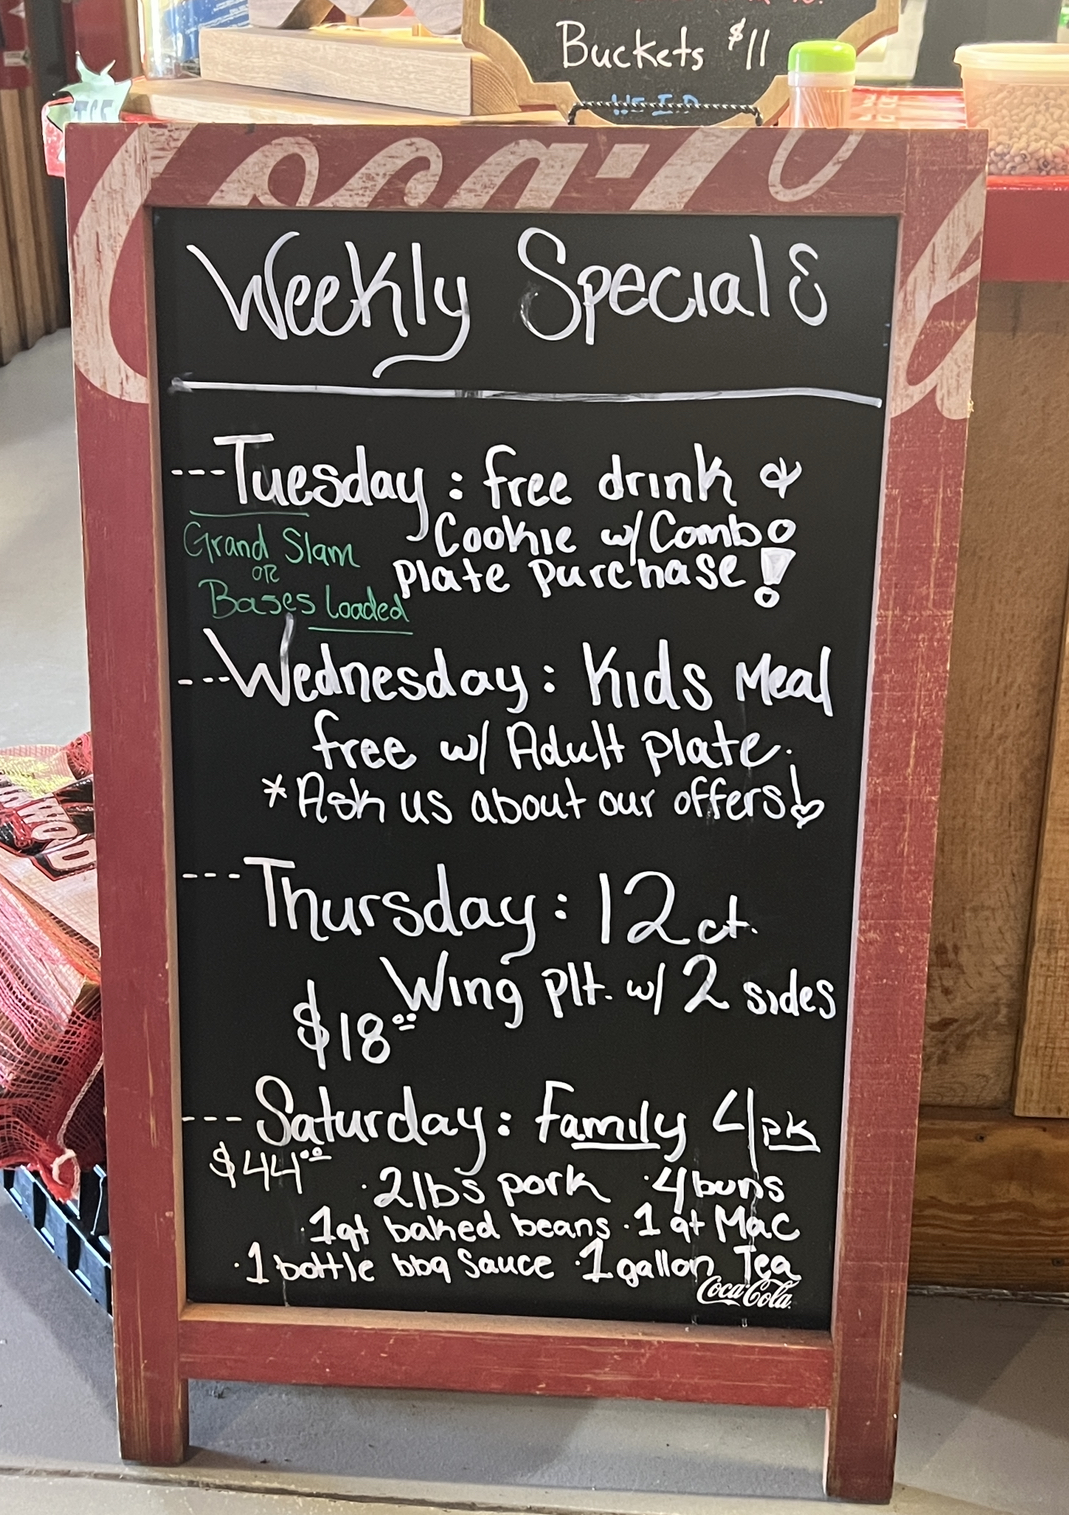 Buckets $11
Coca-Co
Weekly Specials
---Tuesday: free drink &
Cookie w/Combo
plate purchase!
Grand Slam
OR
Bases Loaded
---Wednesday: Kids Meal
free w/ Adult plate.
*Ask us about our offers!
---Thursday: 12 ct.
Wing plt. w/ 2 sides
$18.00
---Saturday: Family 4pk
$44.00
·2lbs pork ·4buns
·1qt baked beans ·1 qt Mac
·1 bottle bbq Sauce ·1gallon Tea
Coca-Cola